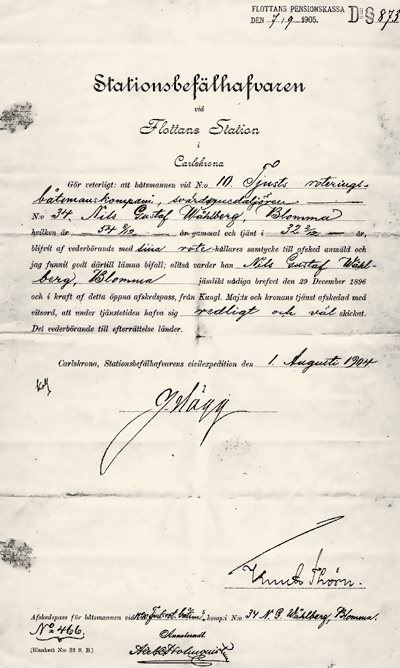 FLOTTANS PENSIONSKASSA
DEN 7/9 1905. D:§ 873
Stationsbefälhafvaren
vid
Flottans Station
i
Carlskrona
Gör veterligt: att båtsmannen vid N:o 10. Tjusts roterings-
båtsmanskompani, svärdsmedaljören
N:o 34. Nils Gustaf Wåhlberg, Blomma
hvilken är 54 9/12 år gammal och tjänt i 32 3/12 år,
blifvit af vederbörande med sina rote-hållares samtycke till afsked anmäld och
jag funnit godt därtill lämna bifall; alltså varder han Nils Gustaf Wåhl-
berg, Blomma jämlikt nådiga brefvet den 29 December 1896
och i kraft af detta öppna afskedspass, från Kungl. Maj:ts och kronans tjänst afskedad med
vitsord, att under tjänstetiden hafva sig redligt och väl skickat.
Det vederbörande till efterrättelse länder.
Carlskrona, Stationsbefälhafvarens civilexpedition den 1. Augusti 1904
G Hägg
Knut Thörn.
Afskedspass för båtsmannen vid komp:i N:o 34 N. G. Wåhlberg, Blomma.
N:o 466.
(Blankett N:o 32 S. B.)